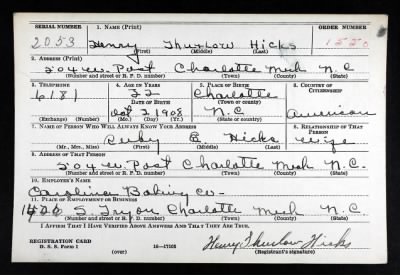 SERIAL NUMBER 1. NAME (Print) ORDER NUMBER
2053 Henry Thurlow Hicks 1550
(First) (Middle) (Last)
2. ADDRESS (Print)
204 W. Post Charlotte Meck N.C.
(Number and street or R. F. D. number) (Town) (County) (State)
3. TELEPHONE 4. AGE IN YEARS 5. PLACE OF BIRTH 6. COUNTRY OF CITIZENSHIP
6181 32 Charlotte
DATE OF BIRTH
Oct 2 1908 N.C. American
(Exchange) (Number) (Mo.) (Day) (Yr.) (State or country)
7. NAME OF PERSON WHO WILL ALWAYS KNOW YOUR ADDRESS 8. RELATIONSHIP OF THAT PERSON
Ruby Hicks wife
(Mr., Mrs., Miss) (First) (Middle) (Last)
9. ADDRESS OF THAT PERSON
204 W. Post Charlotte Meck N.C.
(Number and street or R. F. D. number) (Town) (County) (State)
10. EMPLOYER'S NAME
Carolina Baking Co-
11. PLACE OF EMPLOYMENT OR BUSINESS
S. Tryon Charlotte Meck N.C
(Number and street or R. F. D. number) (Town) (County) (State)
I AFFIRM THAT I HAVE VERIFIED ABOVE ANSWERS AND THAT THEY ARE TRUE.
REGISTRATION CARD
D. S. S. Form 1 (over) 16-17105 Henry Thurlow Hicks
(Registrant's signature)